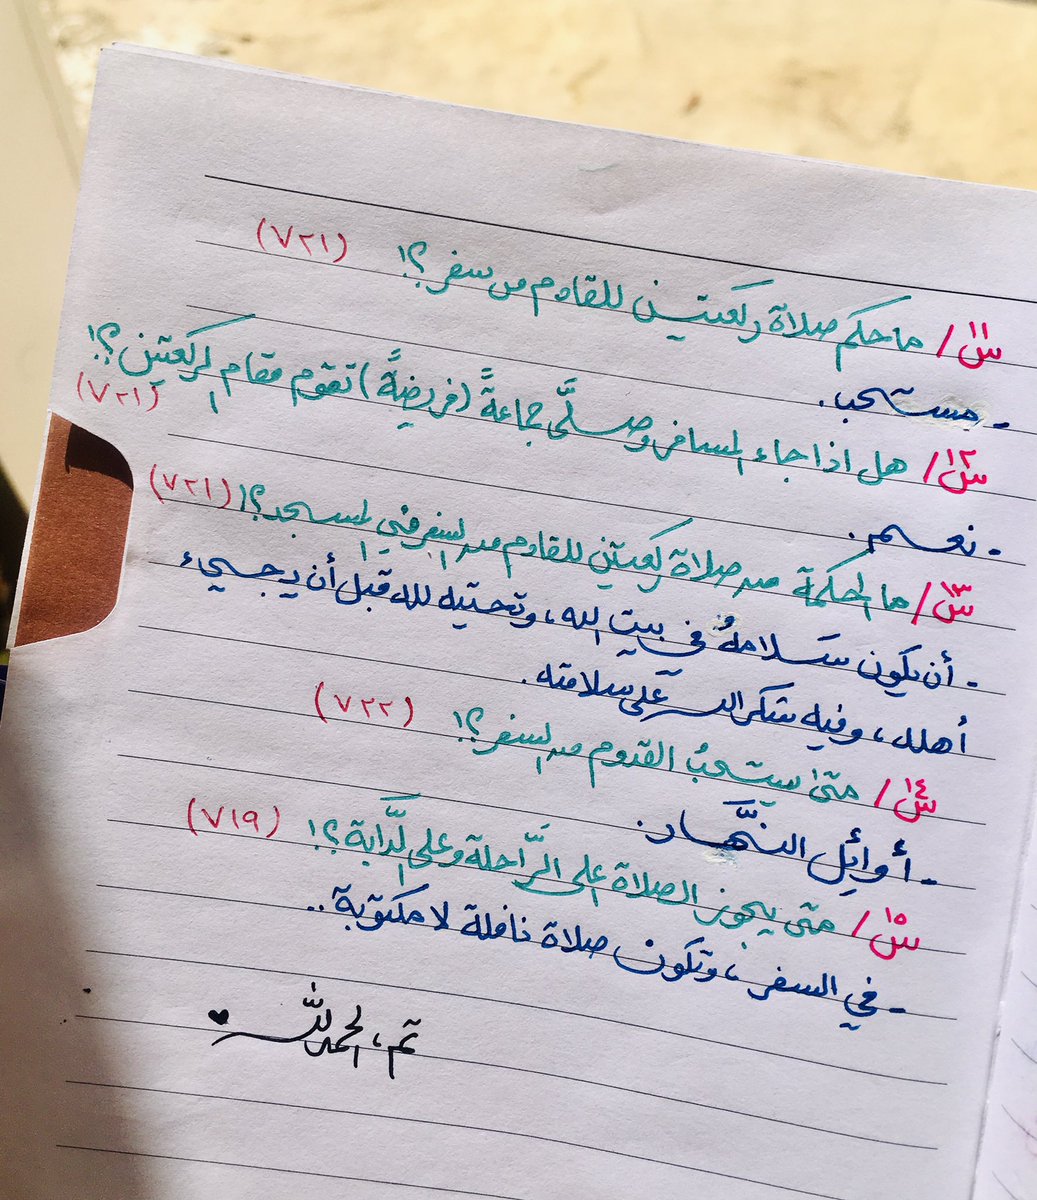 س١١/ ما حكم صلاة ركعتين للقادم من سفر؟! (٧٢١)
- مستحب.
س١٢/ هل اذا جاء المسافر وصلَّى جماعةً (فريضةً) تقوم مقام الركعتين؟! (٧٢١)
- نعم.
س١٣/ ما الحكمة من صلاة ركعتين للقادم من السفر في المسجد؟! (٧٢١)
- أن يكون سَلامهُ في بيت الله، وتحتيه لله قبل أن يجيء
أهله، وفيه شكر الله على سلامته.
س١٤/ متى يستحبُ القدوم من السفر؟! (٧٢٢)
- أوائل النَّهار.
س١٥/ متى يجوز الصلاة على الرَّاحلة وعلى الدَّابة؟! (٧١٩)
- في السفر، وتكون صلاة نافلة لا مكتوبة..
تم، الحمدلله ♥